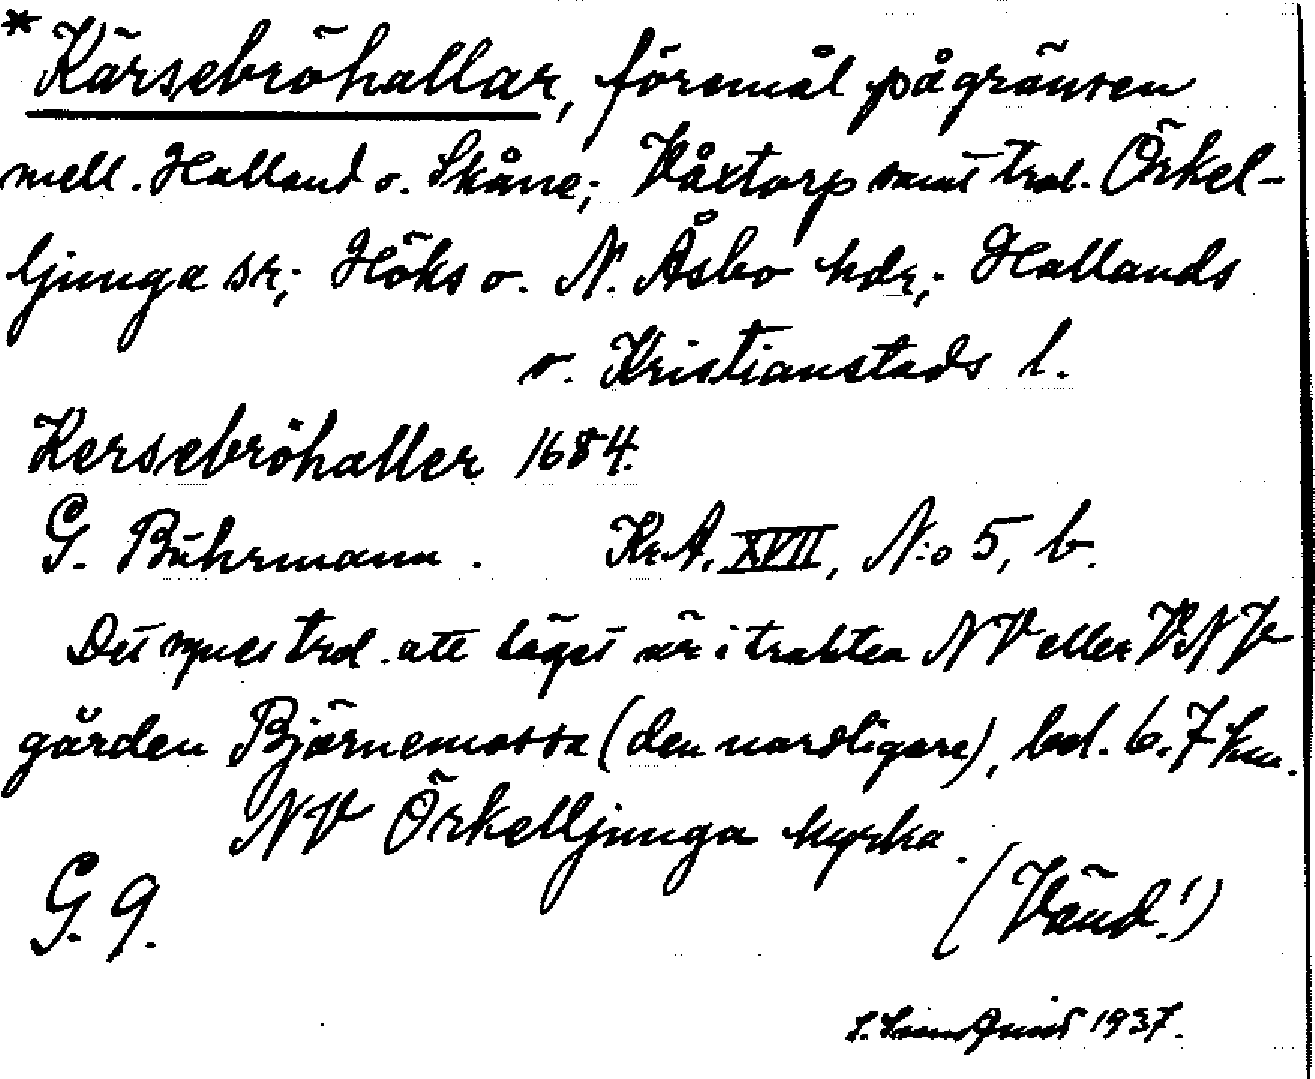 * Kärsebröhallar, föremål på gränsen
mell. Halland o. Skåne; Våxtorp samt trol. Örkel-
ljunga sr; Höks o. N. Åsbo hdr; Hallands
o. Kristianstads l.
Kersebröhaller 1684.
G. Buhrmann. Kr.A. XVII, N:o 5, b.
Det synes trol. att läget är i trakten NV eller VNV
gården Björnemossa (den nordligare), bel. 6.7 km.
NV Örkelljunga kyrka.
G. 9. (Vänd!)
1937.